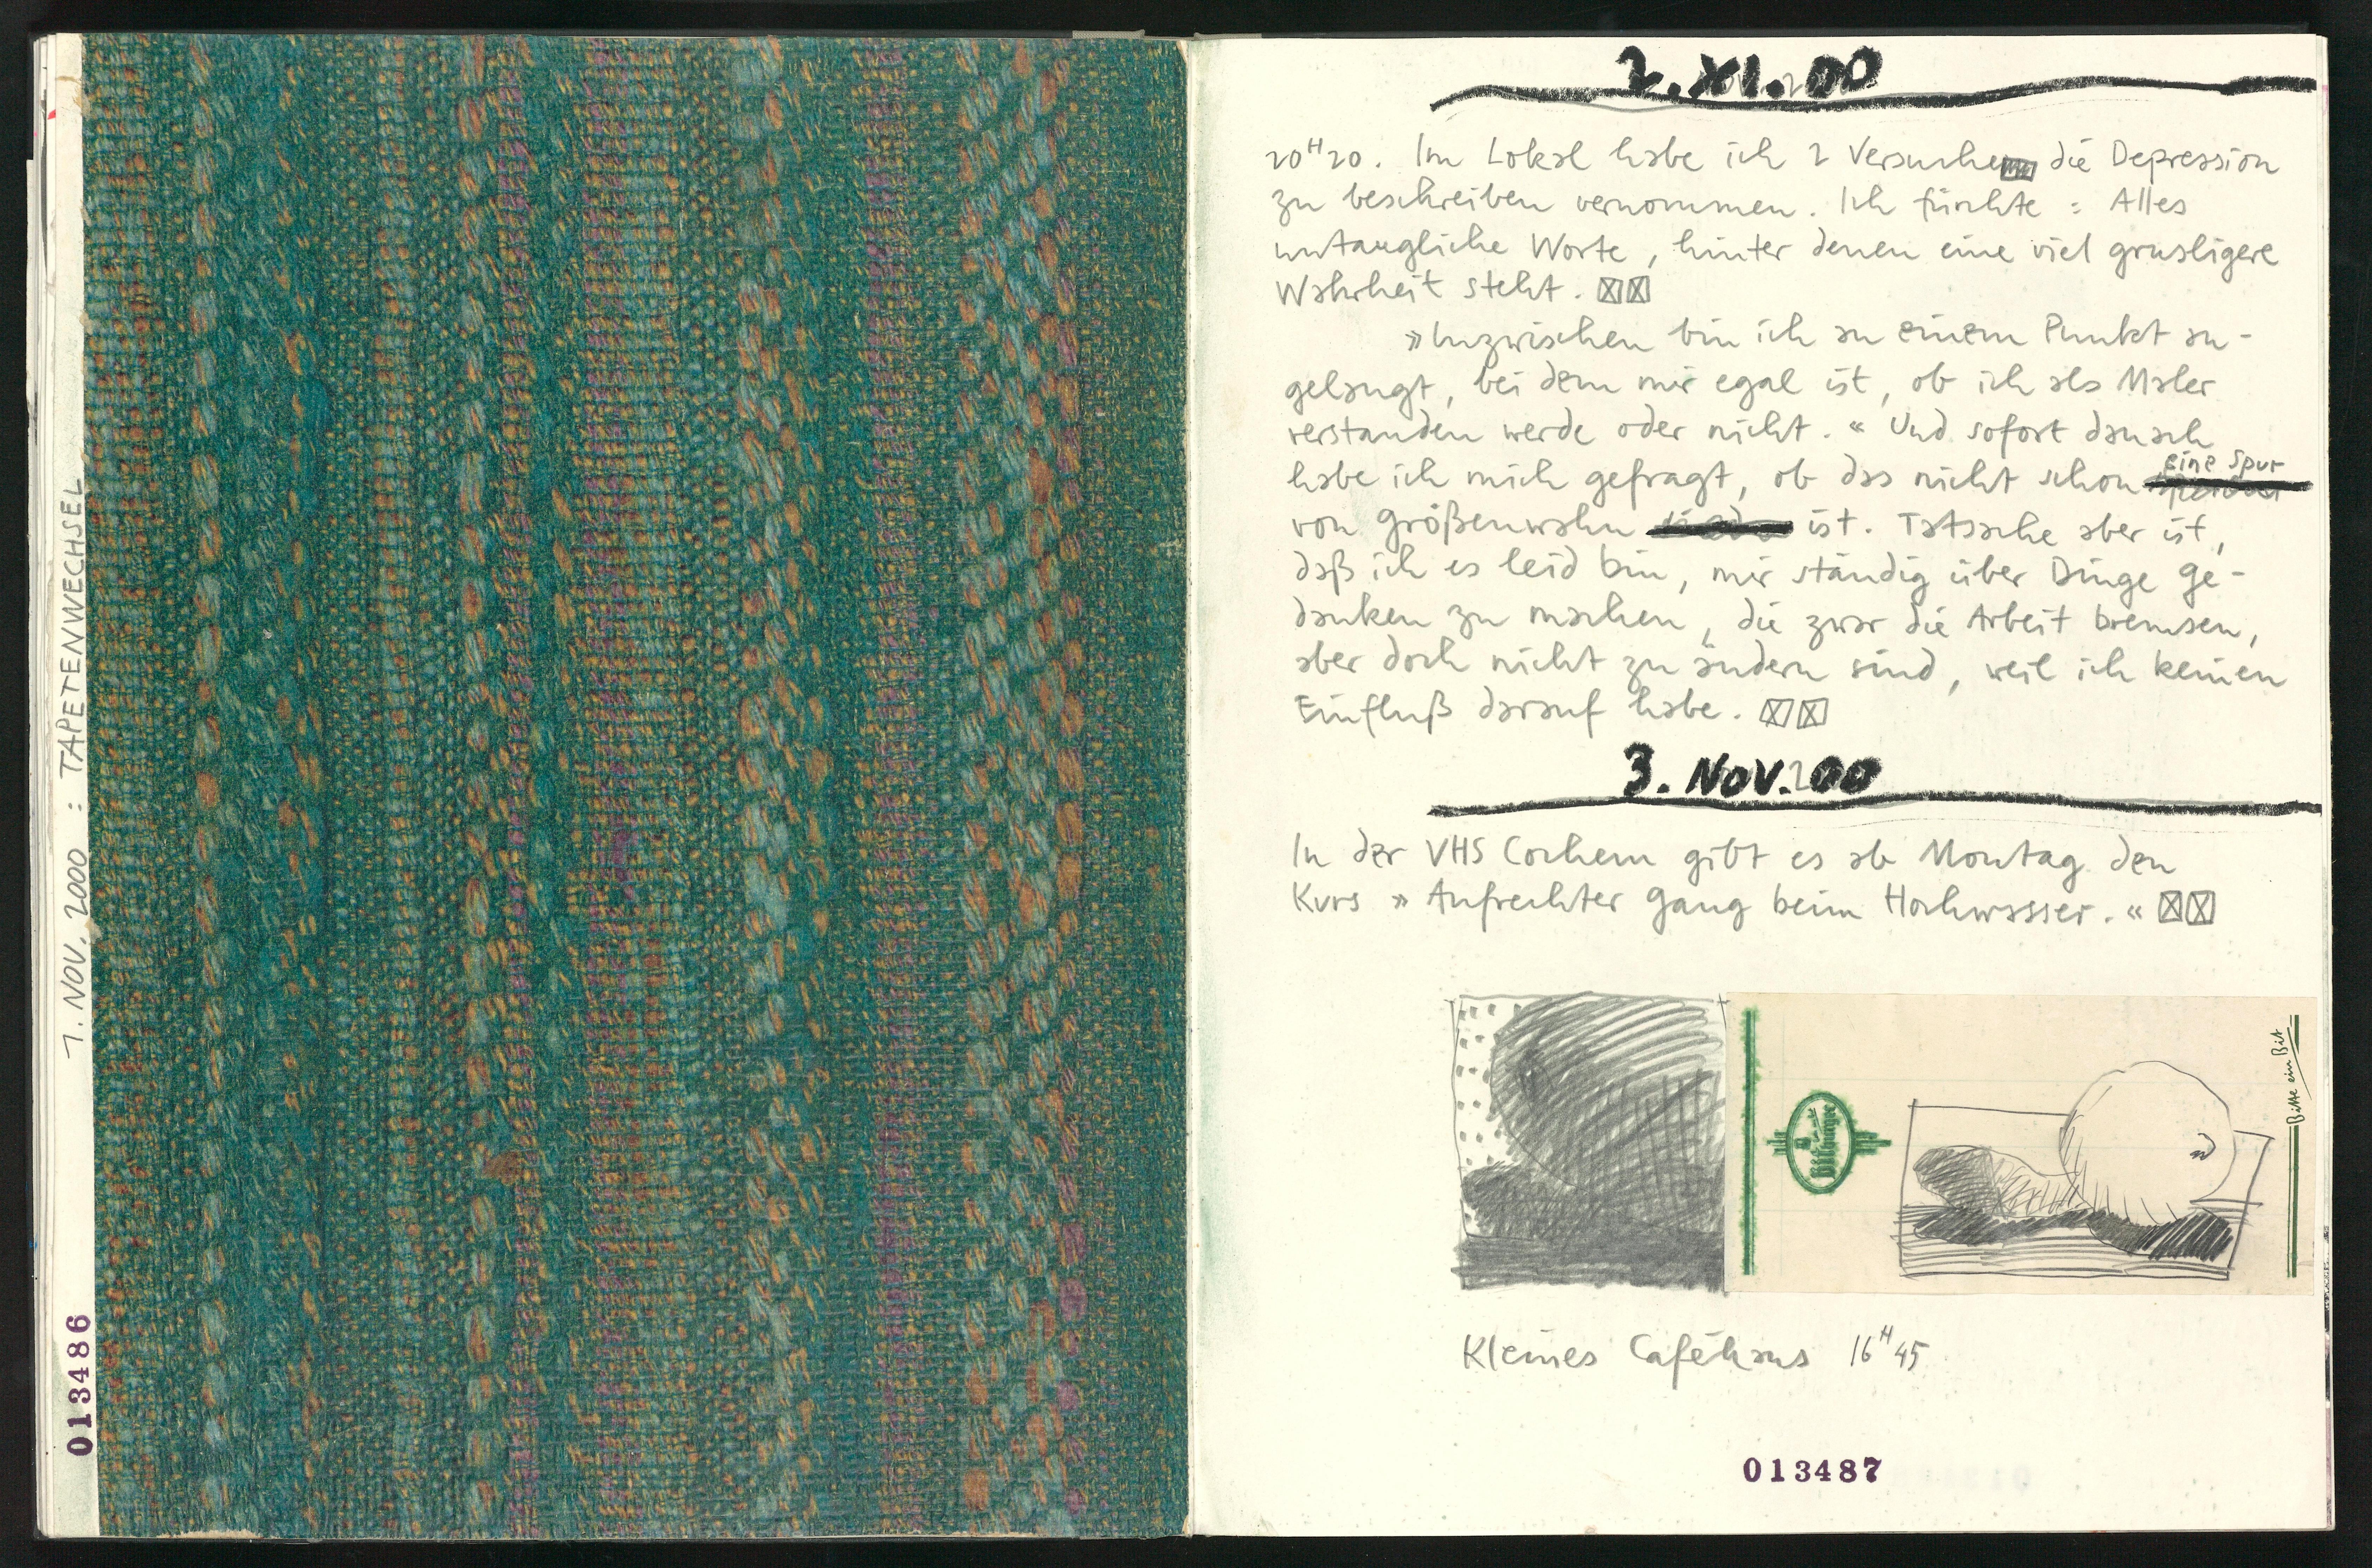 7. NOV. 2000 : TAPETENWECHSEL
013486
2. XI. 00
20H20. Im Lokal habe ich 2 Versuche die Depression
zu beschreiben vernommen. Ich fürchte : Alles
untaugliche Worte, hinter denen eine viel grusligere
Wahrheit steht.
»Inzwischen bin ich an einem Punkt an-
gelangt, bei dem mir egal ist, ob ich als Maler
verstanden werde oder nicht.« Und sofort danach
habe ich mich gefragt, ob das nicht schon eine Spur
von Größenwahn ist. Tatsache aber ist,
daß ich es leid bin, mir ständig über Dinge Ge-
danken zu machen, die zwar die Arbeit bremsen,
aber doch nicht zu ändern sind, weil ich keinen
Einfluß darauf habe.
3. NOV. 00
In der VHS Cochem gibt es ab Montag den
Kurs »Aufrechter Gang beim Hochwasser.«
Bitburger
Bitte ein Bit
Kleines Caféhaus 16H45
013487